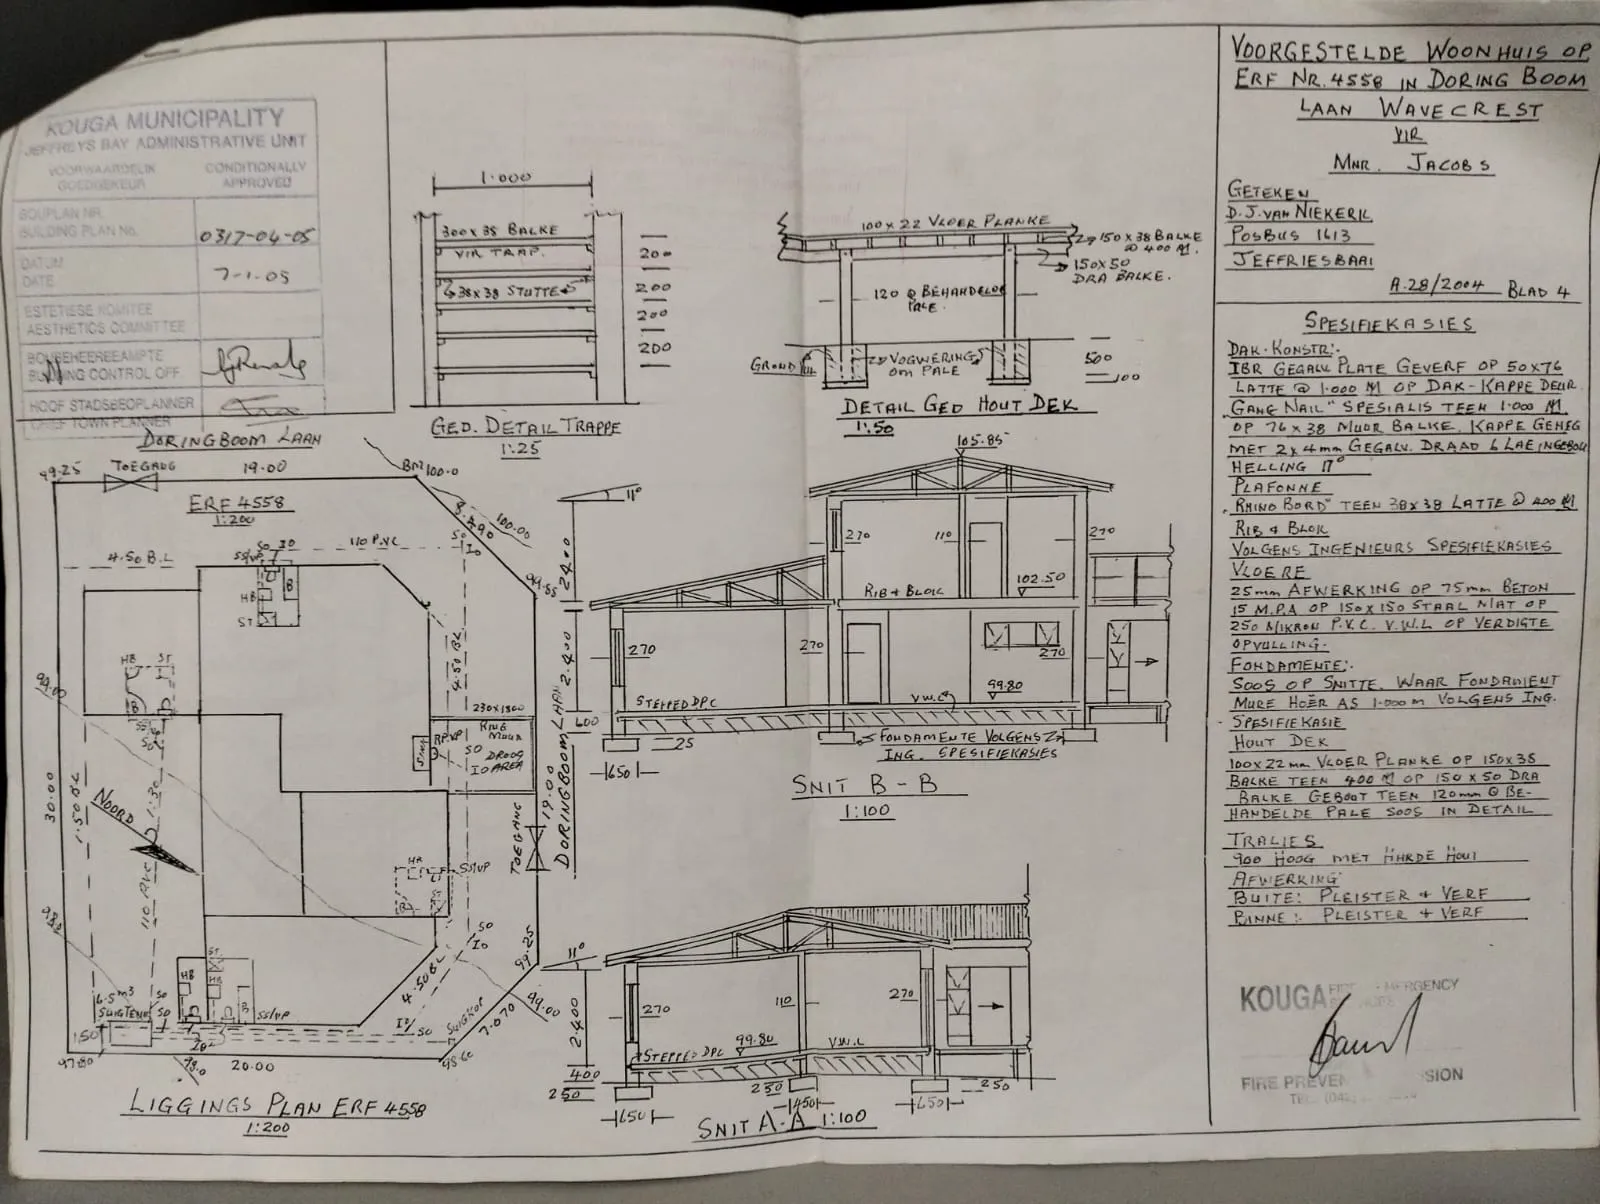 KOUGA MUNICIPALITY
JEFFREYS BAY ADMINISTRATIVE UNIT
VOORWAARDELIK GOEDGEKEUR
CONDITIONALLY APPROVED
BOUPLAN NR.
BUILDING PLAN No.
0317-04-05
DATUM
DATE
7-1-05
ESTETIESE KOMITEE
AESTHETICS COMMITTEE
BOUBEHEEREEAMPTE
BUILDING CONTROL OFF.
HOOF STADSBEPLANNER
CHIEF TOWN PLANNER
1.000
300 x 38 BALKE
VIR TRAP.
38x38 STUTTE
200
200
200
200
GED. DETAIL TRAPPE
1:25
100 x 22 VLOER PLANKE
150 x 38 BALKE
@ 400 M.
150x50
DRA BALKE.
120 Q BEHANDELDE
PALE.
GROND
VOGWERING
OM PALE
500
100
DETAIL GED HOUT DEK
1:50
DORINGBOOM LAAN
99.25
TOEGANG
19.00
BM 100.0
ERF 4558
1:200
8.490
100.00
4.50 B.L
SO IO
SS/VP
110 P.VC
SO
IO
99.55
HB
B
ST
HB
ST
B
4.50 BL
99.00
230x1800
RING
MUUR
RP VP
SO
DROOG
IO AREA
30.00
1.50 BL
1:30
NOORD
110 PVC
TOEGANG
19.00
DORINGBOOM LAAN
HB
SS/VP
SO
IO
99.25
4.50 BL
ST
HB
HB
6.5 m³
SUIGTENK
SO
SO
SS/VP
SO
SUIGKOP
7.070
99.00
1.50
97.80
98.0
20.00
98.60
LIGGINGS PLAN ERF 4558
1:200
105.85
11°
2.400
270
110
270
RIB & BLOK
102.50
2.400
270
270
270
99.80
STEPPED DPC
V.W.L
600
25
650
FONDAMENTE VOLGENS
ING. SPESIFIEKASIES
SNIT B - B
1:100
11°
2.400
270
110
270
99.80
V.W.L
STEPPED DPC
400
250
250
250
650
450
650
SNIT A-A 1:100
VOORGESTELDE WOONHUIS OP
ERF NR. 4558 IN DORING BOOM
LAAN WAVECREST
VIR
MNR. JACOBS
GETEKEN
D.J. VAN NIEKERK
POSBUS 1613
JEFFRIESBAAI
A.28/2004 BLAD 4
SPESIFIEKASIES
DAK-KONSTR:-
IBR GEGALV PLATE GEVERF OP 50x76
LATTE @ 1.000 M OP DAK-KAPPE DEUR
„GANG NAIL" SPESIALIS TEEN 1.000 M.
OP 76 x 38 MUUR BALKE. KAPPE GEHEG
MET 2 x 4mm GEGALV. DRAAD 6 LAE INGEBOU
HELLING 11°
PLAFONNE
„RHINO BORD" TEEN 38x38 LATTE @ 400 M
RIB & BLOK
VOLGENS INGENIEURS SPESIFIEKASIES
VLOERE
25mm AFWERKING OP 75mm BETON
15 M.P.A OP 150 x 150 STAAL MAT OP
250 MIKRON P.V.C. V.W.L OP VERDIGTE
OPVULLING.
FONDAMENTE:.
SOOS OP SNITTE. WAAR FONDAMENT
MURE HOËR AS 1.000 M VOLGENS ING.
SPESIFIEKASIE
HOUT DEK
100x22 mm VLOER PLANKE OP 150x38
BALKE TEEN 400 M OP 150 x 50 DRA
BALKE GEBOUT TEEN 120mm Q BE-
HANDELDE PALE SOOS IN DETAIL
TRALIES
900 HOOG MET HARDE HOUT
AFWERKING:
BUITE: PLEISTER & VERF
BINNE: PLEISTER & VERF
KOUGA
FIRE